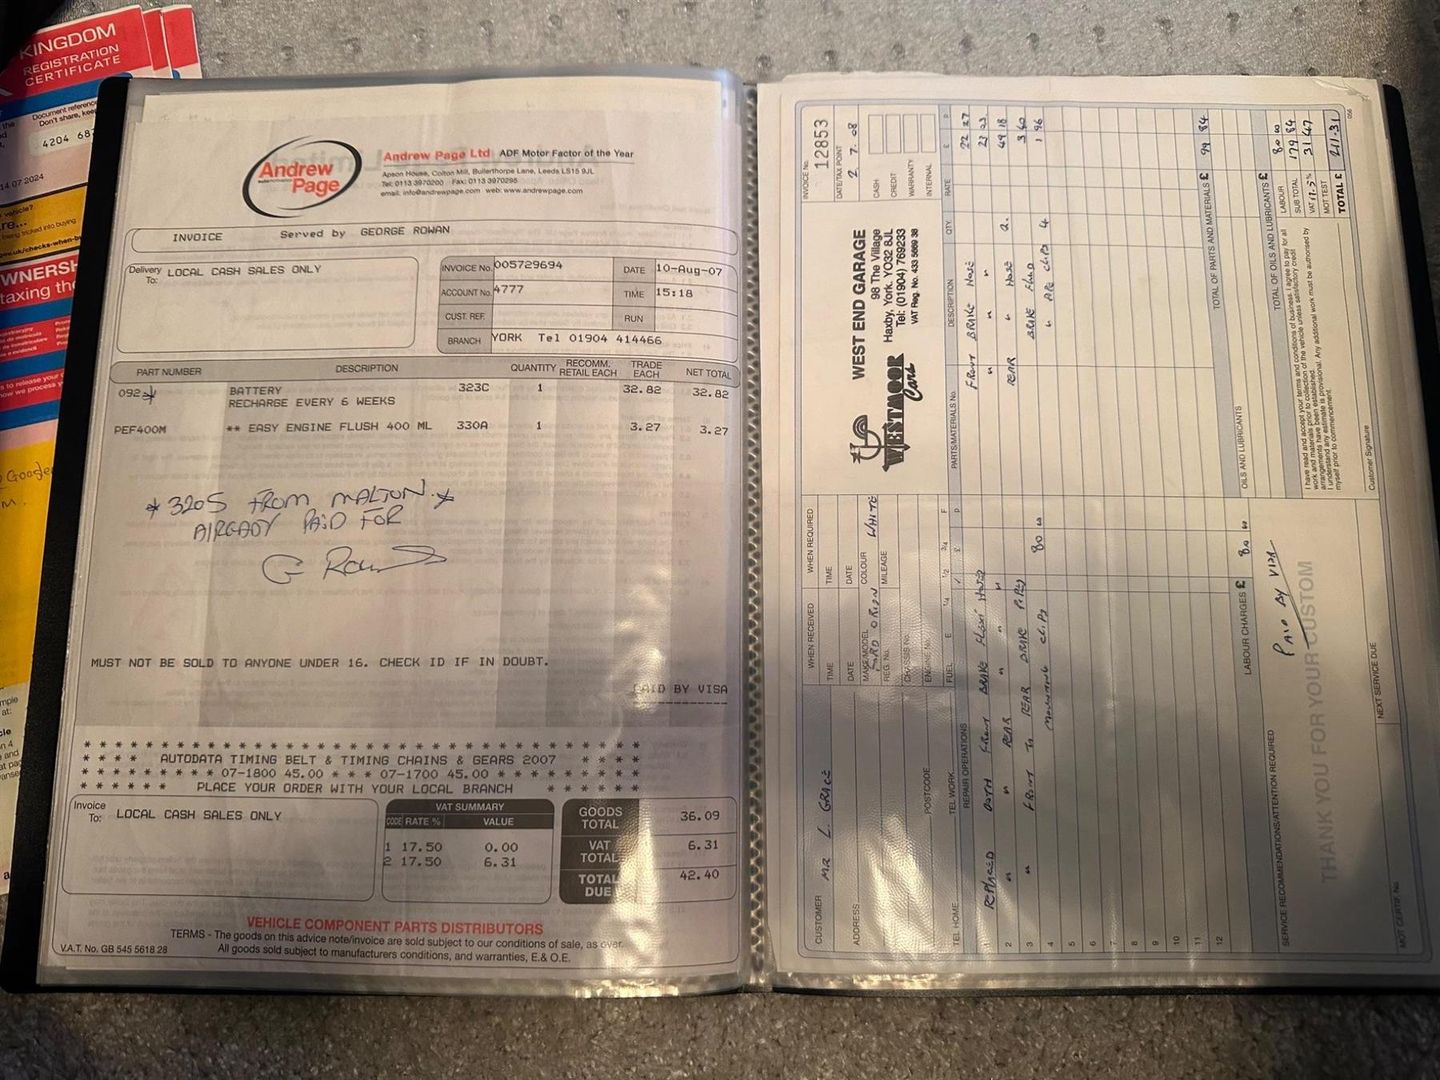 KINGDOM
REGISTRATION
CERTIFICATE
Document reference
Don't share, keep
4204 687
14 07 2024
vehicle?
Andrew
Page
Andrew Page Ltd ADF Motor Factor of the Year
Apson House, Colton Mill, Bullerthorpe Lane, Leeds LS15 9JL
Tel: 0113 3970200 Fax: 0113 3970295
email: info@andrewpage.com web: www.andrewpage.com
INVOICE Served by GEORGE ROWAN
Delivery To: LOCAL CASH SALES ONLY
INVOICE No. 005729694 DATE 10-Aug-07
ACCOUNT No. 4777 TIME 15:18
CUST. REF. RUN
BRANCH YORK Tel 01904 414466
PART NUMBER DESCRIPTION QUANTITY RECOMM. RETAIL EACH TRADE EACH NET TOTAL
092 BATTERY 323C 1 32.82 32.82
RECHARGE EVERY 6 WEEKS
PEF400M ** EASY ENGINE FLUSH 400 ML 330A 1 3.27 3.27
* 3205 FROM MALTON *
ALREADY PAID FOR
G Rowan
MUST NOT BE SOLD TO ANYONE UNDER 16. CHECK ID IF IN DOUBT.
PAID BY VISA
AUTODATA TIMING BELT & TIMING CHAINS & GEARS 2007
* * * * * * * * 07-1800 45.00 * * * 07-1700 45.00 * * * * * * *
PLACE YOUR ORDER WITH YOUR LOCAL BRANCH
Invoice To: LOCAL CASH SALES ONLY
VAT SUMMARY
CODE RATE % VALUE
1 17.50 0.00
2 17.50 6.31
GOODS TOTAL 36.09
VAT TOTAL 6.31
TOTAL DUE 42.40
VEHICLE COMPONENT PARTS DISTRIBUTORS
TERMS - The goods on this advice note/invoice are sold subject to our conditions of sale, as over.
All goods sold subject to manufacturers conditions, and warranties, E.& O.E.
V.A.T. No. GB 545 5618 28
CUSTOMER MR L. GRACE
ADDRESS
POSTCODE
TEL HOME TEL WORK
WHEN RECEIVED WHEN REQUIRED
TIME TIME
DATE DATE
MAKE/MODEL FORD ORION COLOUR WHITE
REG. No. MILEAGE
CHASSIS No.
ENGINE No.
FUEL E 1/4 1/2 3/4 F
WESTMOOR Cars
WEST END GARAGE
98 The Village
Haxby, York. YO32 8JL
Tel: (01904) 769233
VAT Reg. No. 433 5669 38
INVOICE No. 12853
DATE/TAX POINT
2 7. 08
CASH
CREDIT
WARRANTY
INTERNAL
REPAIR OPERATIONS £ P
1 REPLACED BOTH FRONT BRAKE FLEXI HOSE
2 " " REAR " " "
3 " FRONT TO REAR BRAKE PIPES 80 00
4 MOUNTING CLIPS
5
6
7
8
9
10
11
12
LABOUR CHARGES £ 80 00
PARTS/MATERIALS No. DESCRIPTION QTY. RATE £ P
FRONT BRAKE HOSE 22 27
" " " 23 23
REAR " HOSE 2. 49 18
BRAKE FLUID 3 60
" PIPE CLIPS 4 1 96
TOTAL OF PARTS AND MATERIALS £ 99 84
OILS AND LUBRICANTS
TOTAL OF OILS AND LUBRICANTS £
SERVICE RECOMMENDATIONS/ATTENTION REQUIRED
PAID BY VISA
THANK YOU FOR YOUR CUSTOM
MOT CERTIF. No.
NEXT SERVICE DUE
I have read and accept your terms and conditions of business. I agree to pay for all
work and materials prior to collection of the vehicle unless satisfactory credit
arrangements have been established. Any additional work must be authorised by
myself prior to commencement.
Customer Signature
LABOUR 80 00
SUB TOTAL 179 84
VAT 17.5% 31 47
MOT TEST
TOTAL £ 211.31